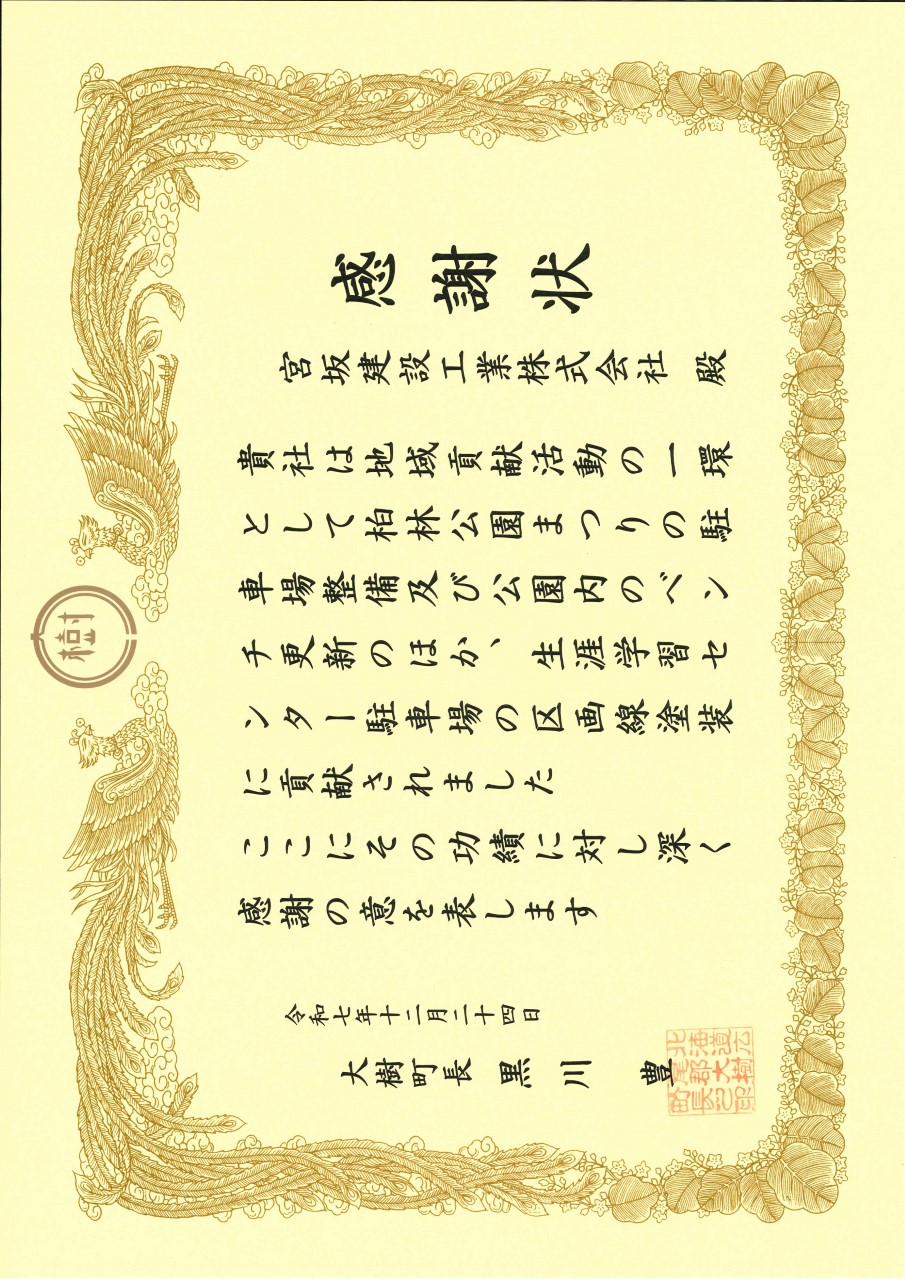 樹
感謝状
宮坂建設工業株式会社 殿
貴社は地域貢献活動の一環
として柏林公園まつりの駐
車場整備及び公園内のベン
チ更新のほか、生涯学習セ
ンター駐車場の区画線塗装
に貢献されました
ここにその功績に対し深く
感謝の意を表します
令和七年十二月二十四日
大樹町長 黒川 豊
北海道広
尾郡大樹
町長之印